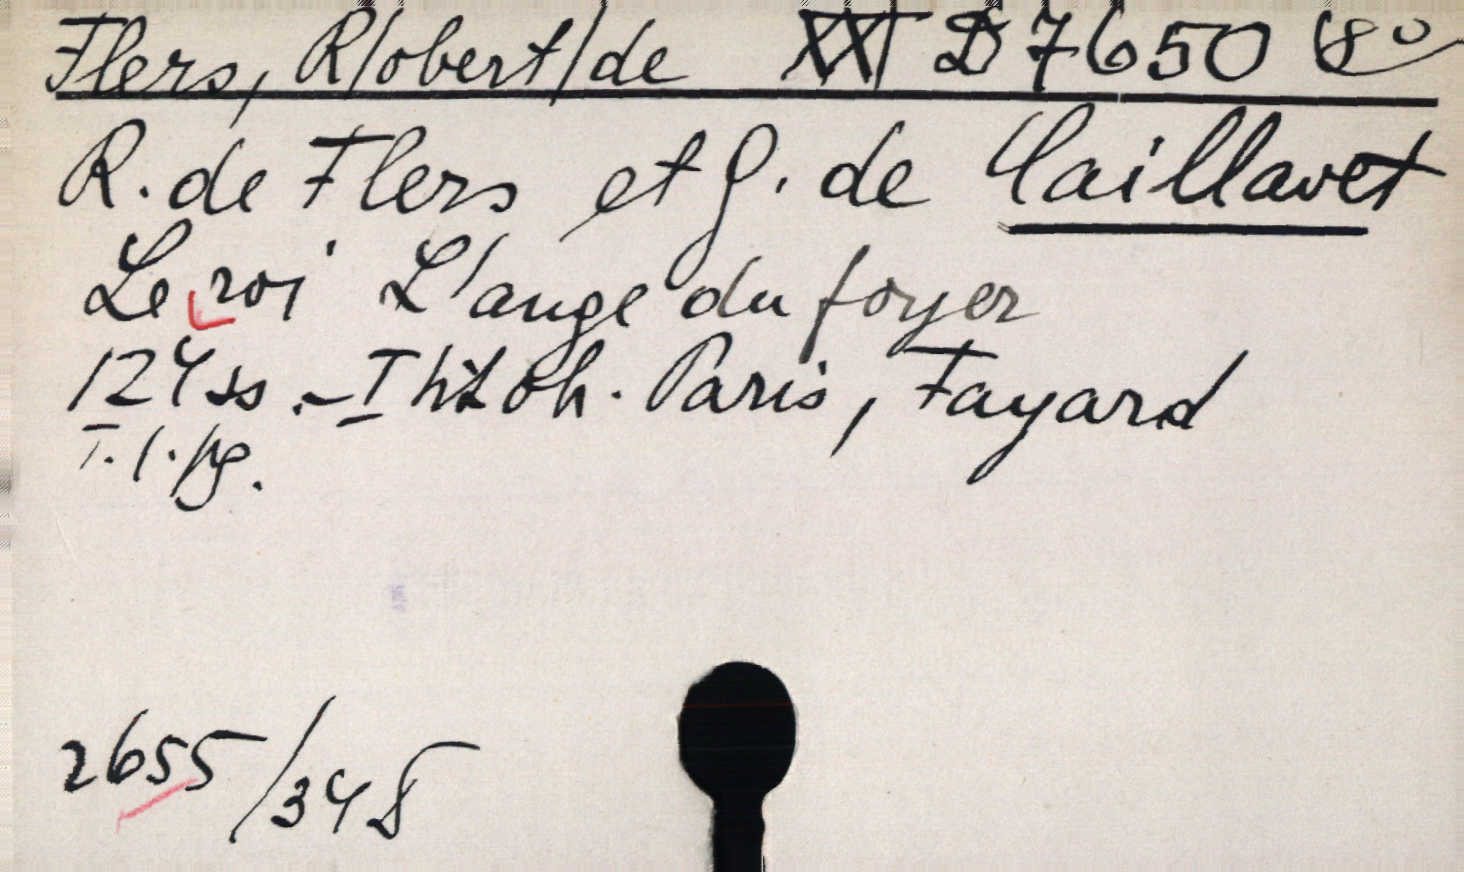 Flers, R/obert/de XXI D 7650 8°
R. de Flers et G. de Caillavet
Le roi L'ange du foyer
124 ss. - I Paris, Fayard
2655/348